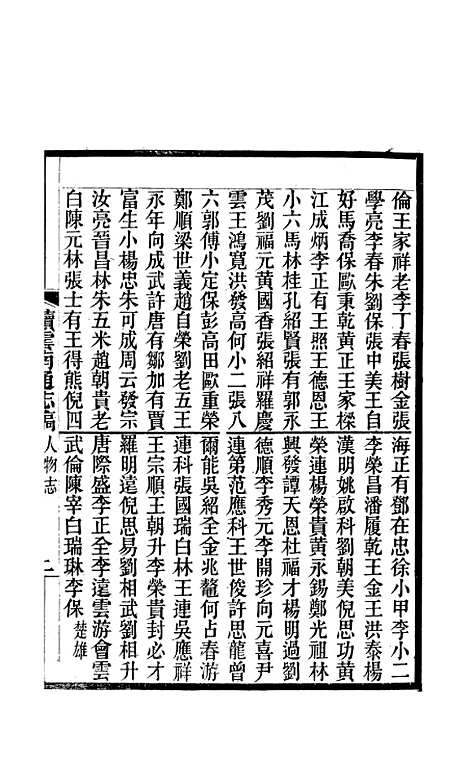 倫王家祥老李丁春張樹金張海正有鄧在忠徐小甲李小二
學亮李春朱劉保張中美王自李榮昌潘履乾王金王洪泰楊
好馬喬保歐秉乾黃正王家樑漢明姚啟科劉朝美倪思功黃
江成炳李正有王照王德恩王榮連楊榮貴黃永錫鄭光祖林
小六馬林桂孔紹賢張有郭永興發譚天恩杜福才楊明過劉
茂劉福元黃國香張紹祥羅慶德順李秀元李開珍向元喜尹
雲王鴻寬洪發高何小二張八連第范應科王世俊許思龍曾
六郭傅小定保彭高田歐重榮爾能吳紹全金兆鼇何占春游
鄭順梁世義趙自榮劉老五王連科張國瑞白林王連吳應祥
永年向成武許唐有鄒加有賈王宗順王朝升李榮貴封必才
富生小楊忠朱可成周云發宗羅明遠倪思易劉相武劉相升
汝亮晉昌林朱五米趙朝貴老唐際盛李正全李遠雲游會雲
白陳元林張士有王得熊倪四武倫陳宰白瑞琳李保楚雄
續雲南通志稿人物志 二